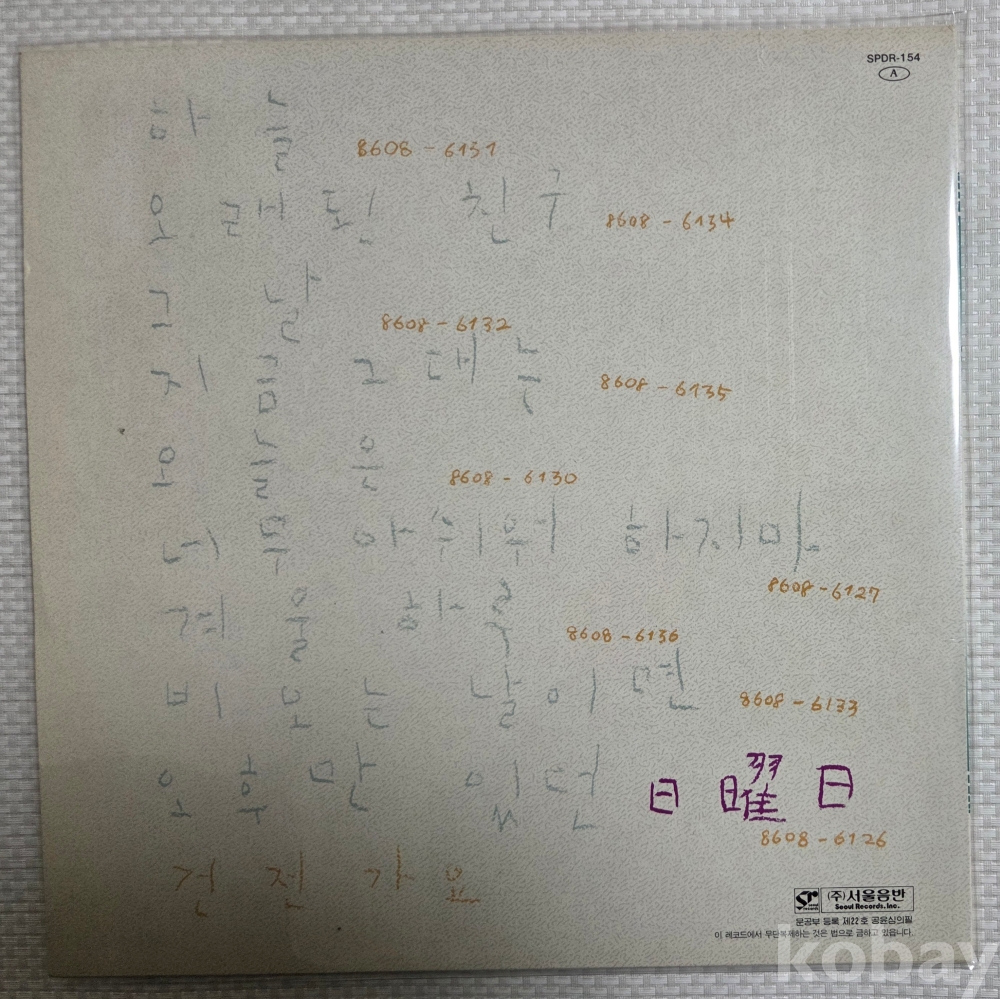 SPDR-154
A
하늘
8608-6131
오래된 친구
8608-6134
그날
8608-6132
지금 그대는
8608-6135
오늘은
8608-6130
너무 아쉬워 하지마
8608-6127
겨울하루
8608-6136
비오는 날이면
8608-6133
오후만 있던 日曜日
8608-6126
건전가요
(주)서울음반
Seoul Records, Inc.
문공부 등록 제22호 공윤심의필
이 레코드에서 무단복제하는 것은 법으로 금하고 있읍니다.
kobay